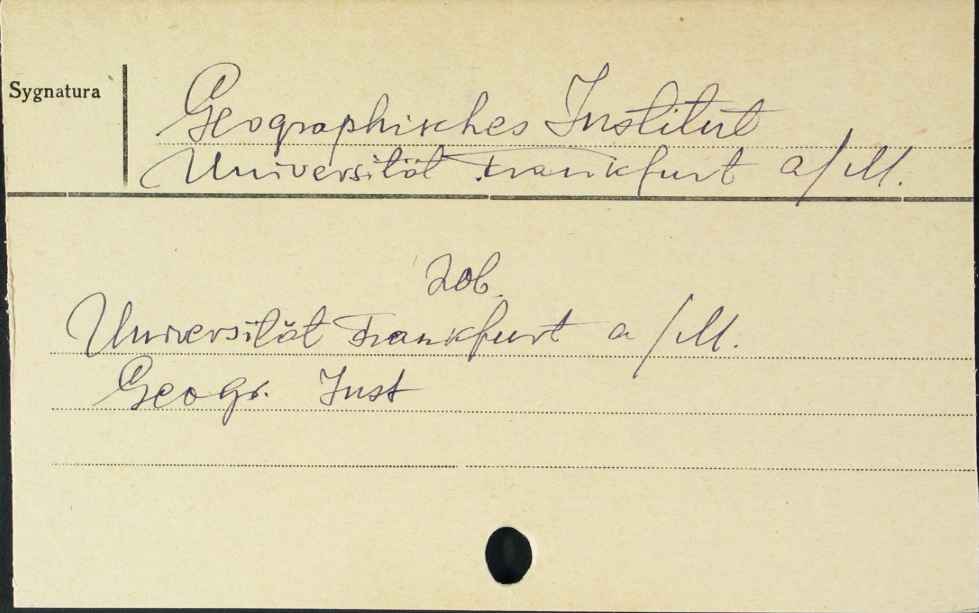 Sygnatura
Geographisches Institut
Universität Frankfurt a/M.
Zob.
Universität Frankfurt a/M.
Geogr. Inst